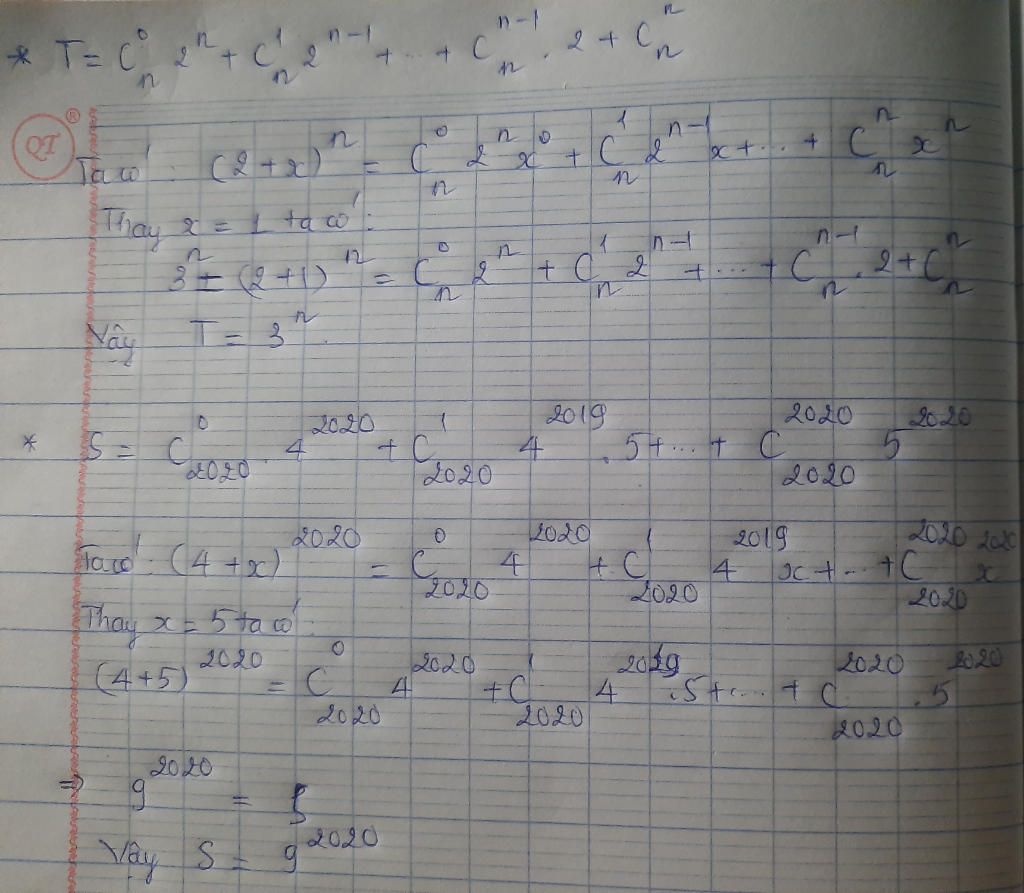 * T = C_n^0 2^n + C_n^1 2^{n-1} + ... + C_n^{n-1} . 2 + C_n^n
Ta có : (2 + x)^n = C_n^0 2^n x^0 + C_n^1 2^{n-1} x + ... + C_n^n x^n
Thay x = 1 ta có :
3^n = (2+1)^n = C_n^0 2^n + C_n^1 2^{n-1} + ... + C_n^{n-1} . 2 + C_n^n
Vậy T = 3^n.
* S = C_{2020}^0 . 4^{2020} + C_{2020}^1 4^{2019} . 5 + ... + C_{2020}^{2020} 5^{2020}
Ta có : (4 + x)^{2020} = C_{2020}^0 4^{2020} + C_{2020}^1 4^{2019} x + ... + C_{2020}^{2020} x^{2020}
Thay x = 5 ta có :
(4+5)^{2020} = C_{2020}^0 4^{2020} + C_{2020}^1 4^{2019} . 5 + ... + C_{2020}^{2020} . 5^{2020}
⇒ 9^{2020} = S
Vậy S = 9^{2020}